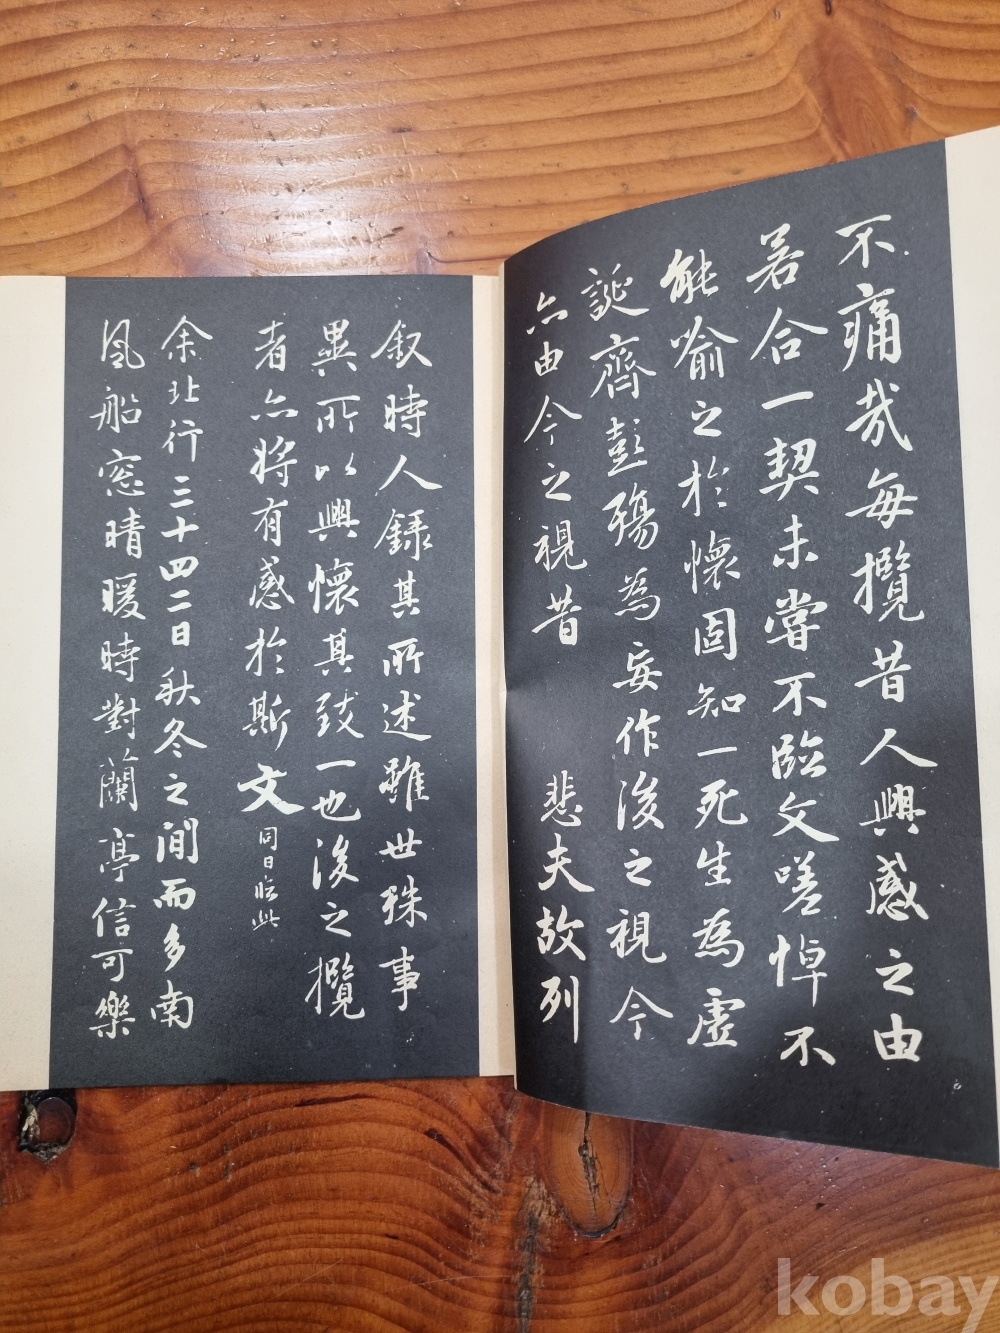 不痛哉每攬昔人興感之由
若合一契未嘗不臨文嗟悼不
能喻之於懷固知一死生為虛
誕齊彭殤為妄作後之視今
亦由今之視昔 悲夫故列
叙時人錄其所述雖世殊事
異所以興懷其致一也後之攬
者亦將有感於斯文同日臨此
余北行三十四二日秋冬之間而多南
風船窓晴暖時對蘭亭信可樂
kobay